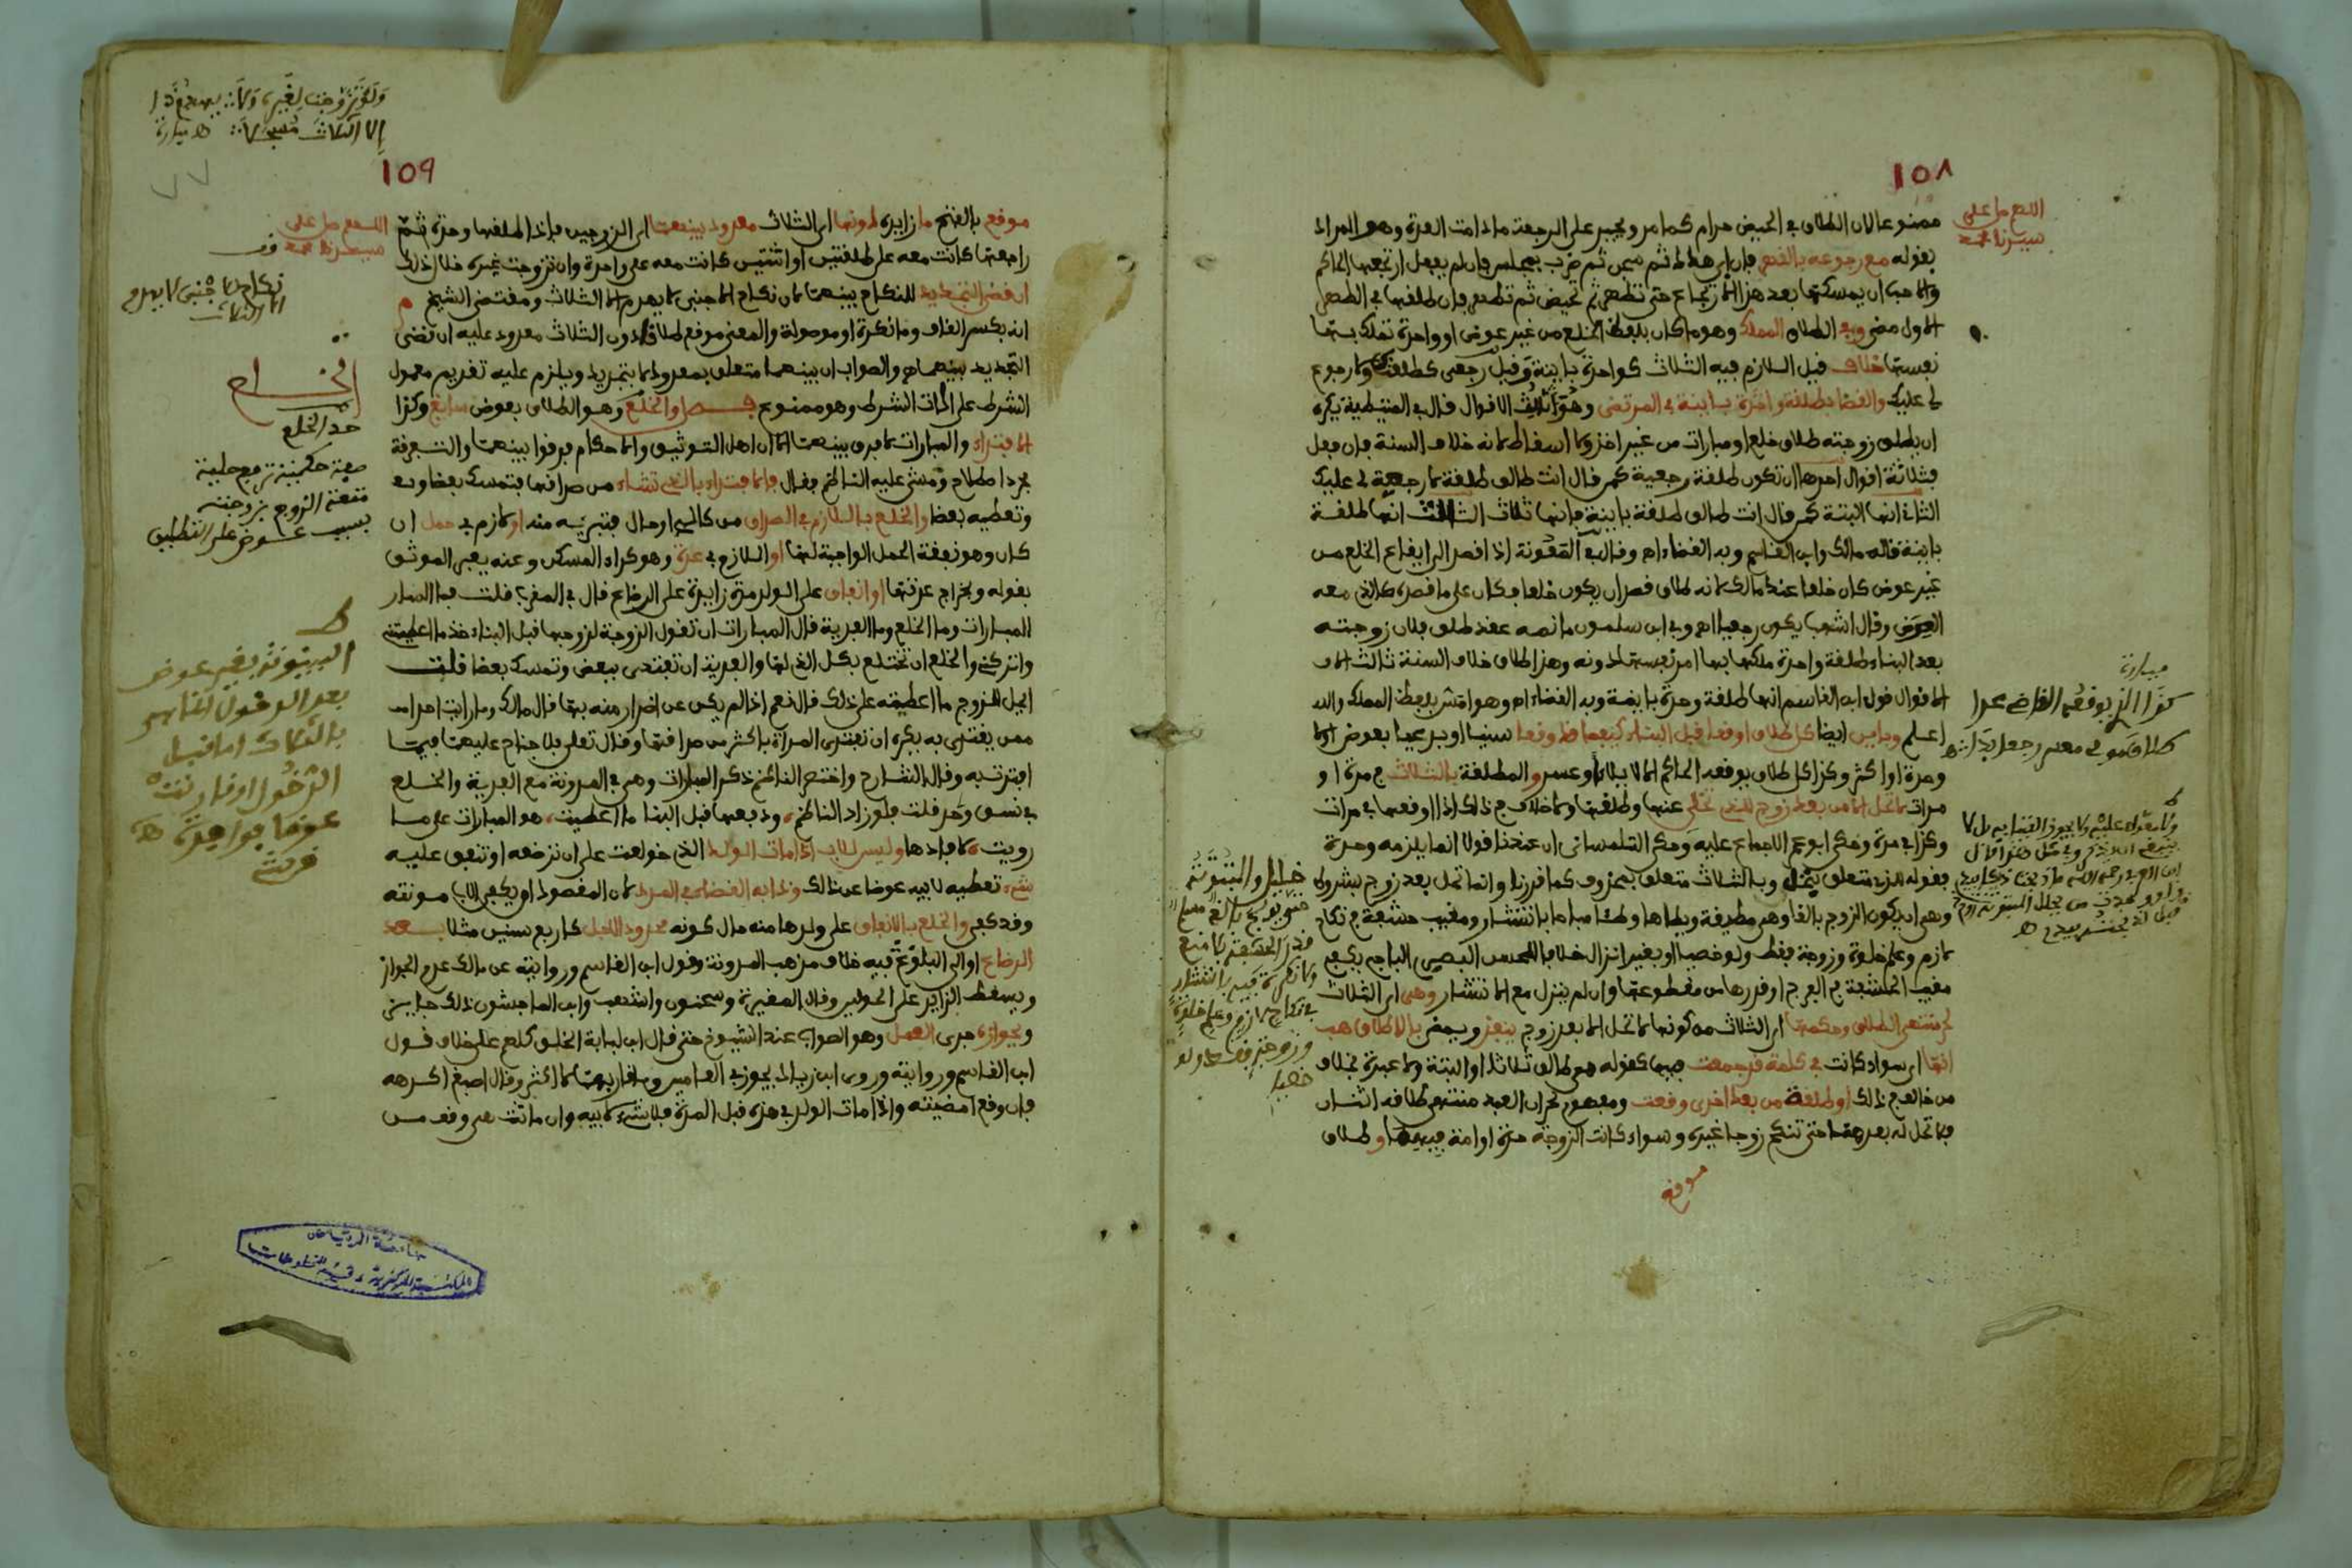 ١٥٨
اللهم صل على
سيدنا محمد
ممنوعا لان الطلاق في الحيض حرام كما مر ويجبر على الرجعة ما دامت العدة وهو المراد
بقوله مع رجوعه بالقهر فان ابى هدد ثم سجن ثم ضرب بمجلس فان لم يفعل ارتجعها الحاكم
والاحب ان يمسكها بعد هذا الارتجاع حتى تطهر ثم تحيض ثم تطهر فان طلقها في الطهر
الاول مضى وفي الطلاق المملك وهو ما كان بلفظ الخلع من غير عوض او واحدة تملك بها
نفسها خلاف قيل اللازم فيه الثلاث كواحدة باينة وقيل رجعي كطلقتك ولا رجوع
لي عليك والقضا بطلقة واحدة باينة في المرتضى وهو ثالث الاقوال قال في المتيطية يكره
ان يطلق زوجته طلاق خلع او مبارات من غير اخذ ولا اسقاط لانه خلاف السنة فان فعل
فثلاثة اقوال احدها ان تكون طلقة رجعية كمن قال انت طالق طلقة لا رجعة لي عليك
الثاني انها البتة كمن قال انت طالق طلقة باينة فانها ثلاث الثالث انها طلقة
باينة قاله مالك وابن القاسم وبه القضاء اه وقال في المقصد اذا قصد الى ايقاع الخلع من
غير عوض كان خلعا عند مالك لانه طلاق قصد ان يكون خلعا فكان على ما قصده كالذي معه
العوض وقال اشهب يكون رجعيا اه وفي ابن سلمون ما نصه عقد طلق فلان زوجته
بعد البناء طلقة واحدة ملكها بها امر نفسها دونه وهذا طلاق خلاف السنة ثالث
الاقوال قول ابن القاسم انها طلقة وحدة باينة وبه القضاء اه وهو بلفظ المملك والله
اعلم وباين ايضا كل طلاق اوقعا قبل البناء كيفما قد وقعا سنيا او بدعيا بعوض ام لا
وحدة او اكثر وكذا كل طلاق يوقعه الحاكم الا لايلاء وعسر والمطلقة بالثلاث في مرة او
مرات لا تحل الا من بعد زوج للذي تخلى عنها وطلقها ولا خلاف في ذلك اذا اوقعها في مرات
وكذا في مرة وحكى ابو عمر الاجماع عليه وحكى التلمساني ان عندنا قولا انما يلزمه وحدة
فقوله للذي متعلق بتحل وبالثلاث متعلق بمحذوف كما قررنا وانما تحل بعد زوج بشروط
وهي ان يكون الزوج بالغا وهي مطيقة وطئها وطئا مباحا بانتشار ومغيب حشفة في نكاح
لازم وعلم خلوة وزوجة فقط ولو خصيا او بغير انزال خلافا للحسن البصري الباجي يكفي
مغيب الحشفة في الفرج او قدرها من مقطوعها وان لم ينزل مع الانتشار وهي اي الثلاث
لحر منتهى الطلاق وحكمها اي الثلاث من كونها لا تحل الا بعد زوج ينفذ ويمضي بالاطلاق هب
انها اي سواء كانت في كلمة قد جمعت جميعا كقوله هي طالق ثلاثا او البتة ولا عبرة بخلاف
من خالف في ذلك او طلقة من بعد اخرى وقعت ومفهوم لحر ان العبد منتهى طلاقه اثنتان
فلا تحل له بعدهما حتى تنكح زوجا غيره وسواء كانت الزوجة حرة او امة فيهما وطلاق
موقع
ميارة
كذا الذي يوقعه القاضي عدا
خليل والمبتوتة
حتى يولج بالغ مسلم
قدر الحشفة بلا منع
ولا نكرة فيه بانتشار
في نكاح لازم وعلم خلوة
وزوجة فقط ولو
خصيا
١٥٩
ولو تزوجت لغيره ولا يهدم ذا
الا الثلاث مسجلا اه ميارة
اللهم صل على
سيدنا محمد
موقع بالفتح ما زايدة دونها اي الثلاث معدود بينهما اي الزوجين فاذا طلقها وحدة ثم
راجعها كانت معه على طلقتين او اثنتين كانت معه على واحدة وان تزوجت غيره خلال ذلك
ان قضي التجديد للنكاح بينهما لان نكاح الاجنبي لا يهدم الا الثلاث ومقتضى الشيخ م
انه بكسر القاف وما نكرة او موصولة والمعنى موقع طلاق دون الثلاث معدود عليه ان قضى
التجديد بينهما اه والصواب ان بينهما متعلق بمعدود لا بتجديد ويلزم عليه تقديم معمول
الشرط على اداة الشرط وهو ممنوع فصل والخلع وهو الطلاق بعوض سايغ وكذا
الافتداء والمبارات لا فرق بينهما الا ان اهل التوثيق والاحكام فرقوا بينهما والتفرقة
مجرد اصطلاح ومشى عليه الناظم فقال فالافتداء بالذي تشاء من صداقها فتمسك بعضا
وتعطيه بعضا والخلع باللازم في الصداق من كالئ او حال فتبريه منه او لازم في حمل ان
كان وهو نفقة الحمل الواجبة لها او اللازم في عدة وهو كراء المسكن وعنه يعبر الموثق
بقوله وبخراج عدتها او انفاق على الولد مدة زايدة على الرضاع قال في المقرب قلت فما
المبارات وما الخلع وما الفدية قال المبارات ان تقول الزوجة لزوجها قبل البناء خذ ما اعطيتني
واتركني والخلع ان تختلع بكل الذي لها والفدية ان تفتدي ببعض وتمسك بعضا قلت
ايحل للزوج ما اعطيته على ذلك قال نعم اذا لم يكن عن اضرار منه بها قال مالك وما رايت احدا
ممن يقتدى به يكره ان تفتدي المرأة باكثر من صداقها وقد قال تعالى فلا جناح عليهما فيما
افتدت به وقال الشارح واختصر الناظم ذكر المبارات وهي في المدونة مع الفدية والخلع
في نسق وحد قلت فلو زاد الناظم ودفعها قبل البنا ما اعطيت هو المبارات على ما
رويت لافادها وليس للاب اذا مات الولد الذي خولعت على ان ترضعه او تنفق عليه
شيء تعطيه لابيه عوضا عن ذلك وذا به القضاء في المرد لان المقصود ان يكفى الاب مونته
وقد كفي والخلع بالانفاق على ولدها منه حال كونه محدود الاجل كاربع سنين مثلا بعد
الرضاع او الى البلوغ فيه خلاف مذهب المدونة وقول ابن القاسم وروايته عن مالك عدم الجواز
ويسقط الزايد على الحولين وقال المغيرة وسحنون واشهب وابن الماجشون ذلك جايز
وبجوازه جرى العمل وهو الصواب عند الشيوخ حتى قال ابن لبابة الخلق كلهم على خلاف قول
ابن القاسم وروايته وروى ابن زياد يجوز في العامين وما قاربهما لا اكثر وقال اصبغ اكرهه
فان وقع امضيته واذا مات الولد في هذه قبل المدة فلا شيء لابيه وان ماتت هي وقف من
نكاح الاجنبي لا يهدم
الا الثلاث
الخلع
حد الخلع
صفة حكمية ترفع حلية
متعة الزوج بزوجته
بسبب عوض على التطليق
البينونة بغير عوض
بعد الدخول الظاهر
بالثلاث اما قبل
الدخول او قارنته
عوضا فواحدة اه
جامعة الرياض
المكتبة المركزية - قسم المخطوطات